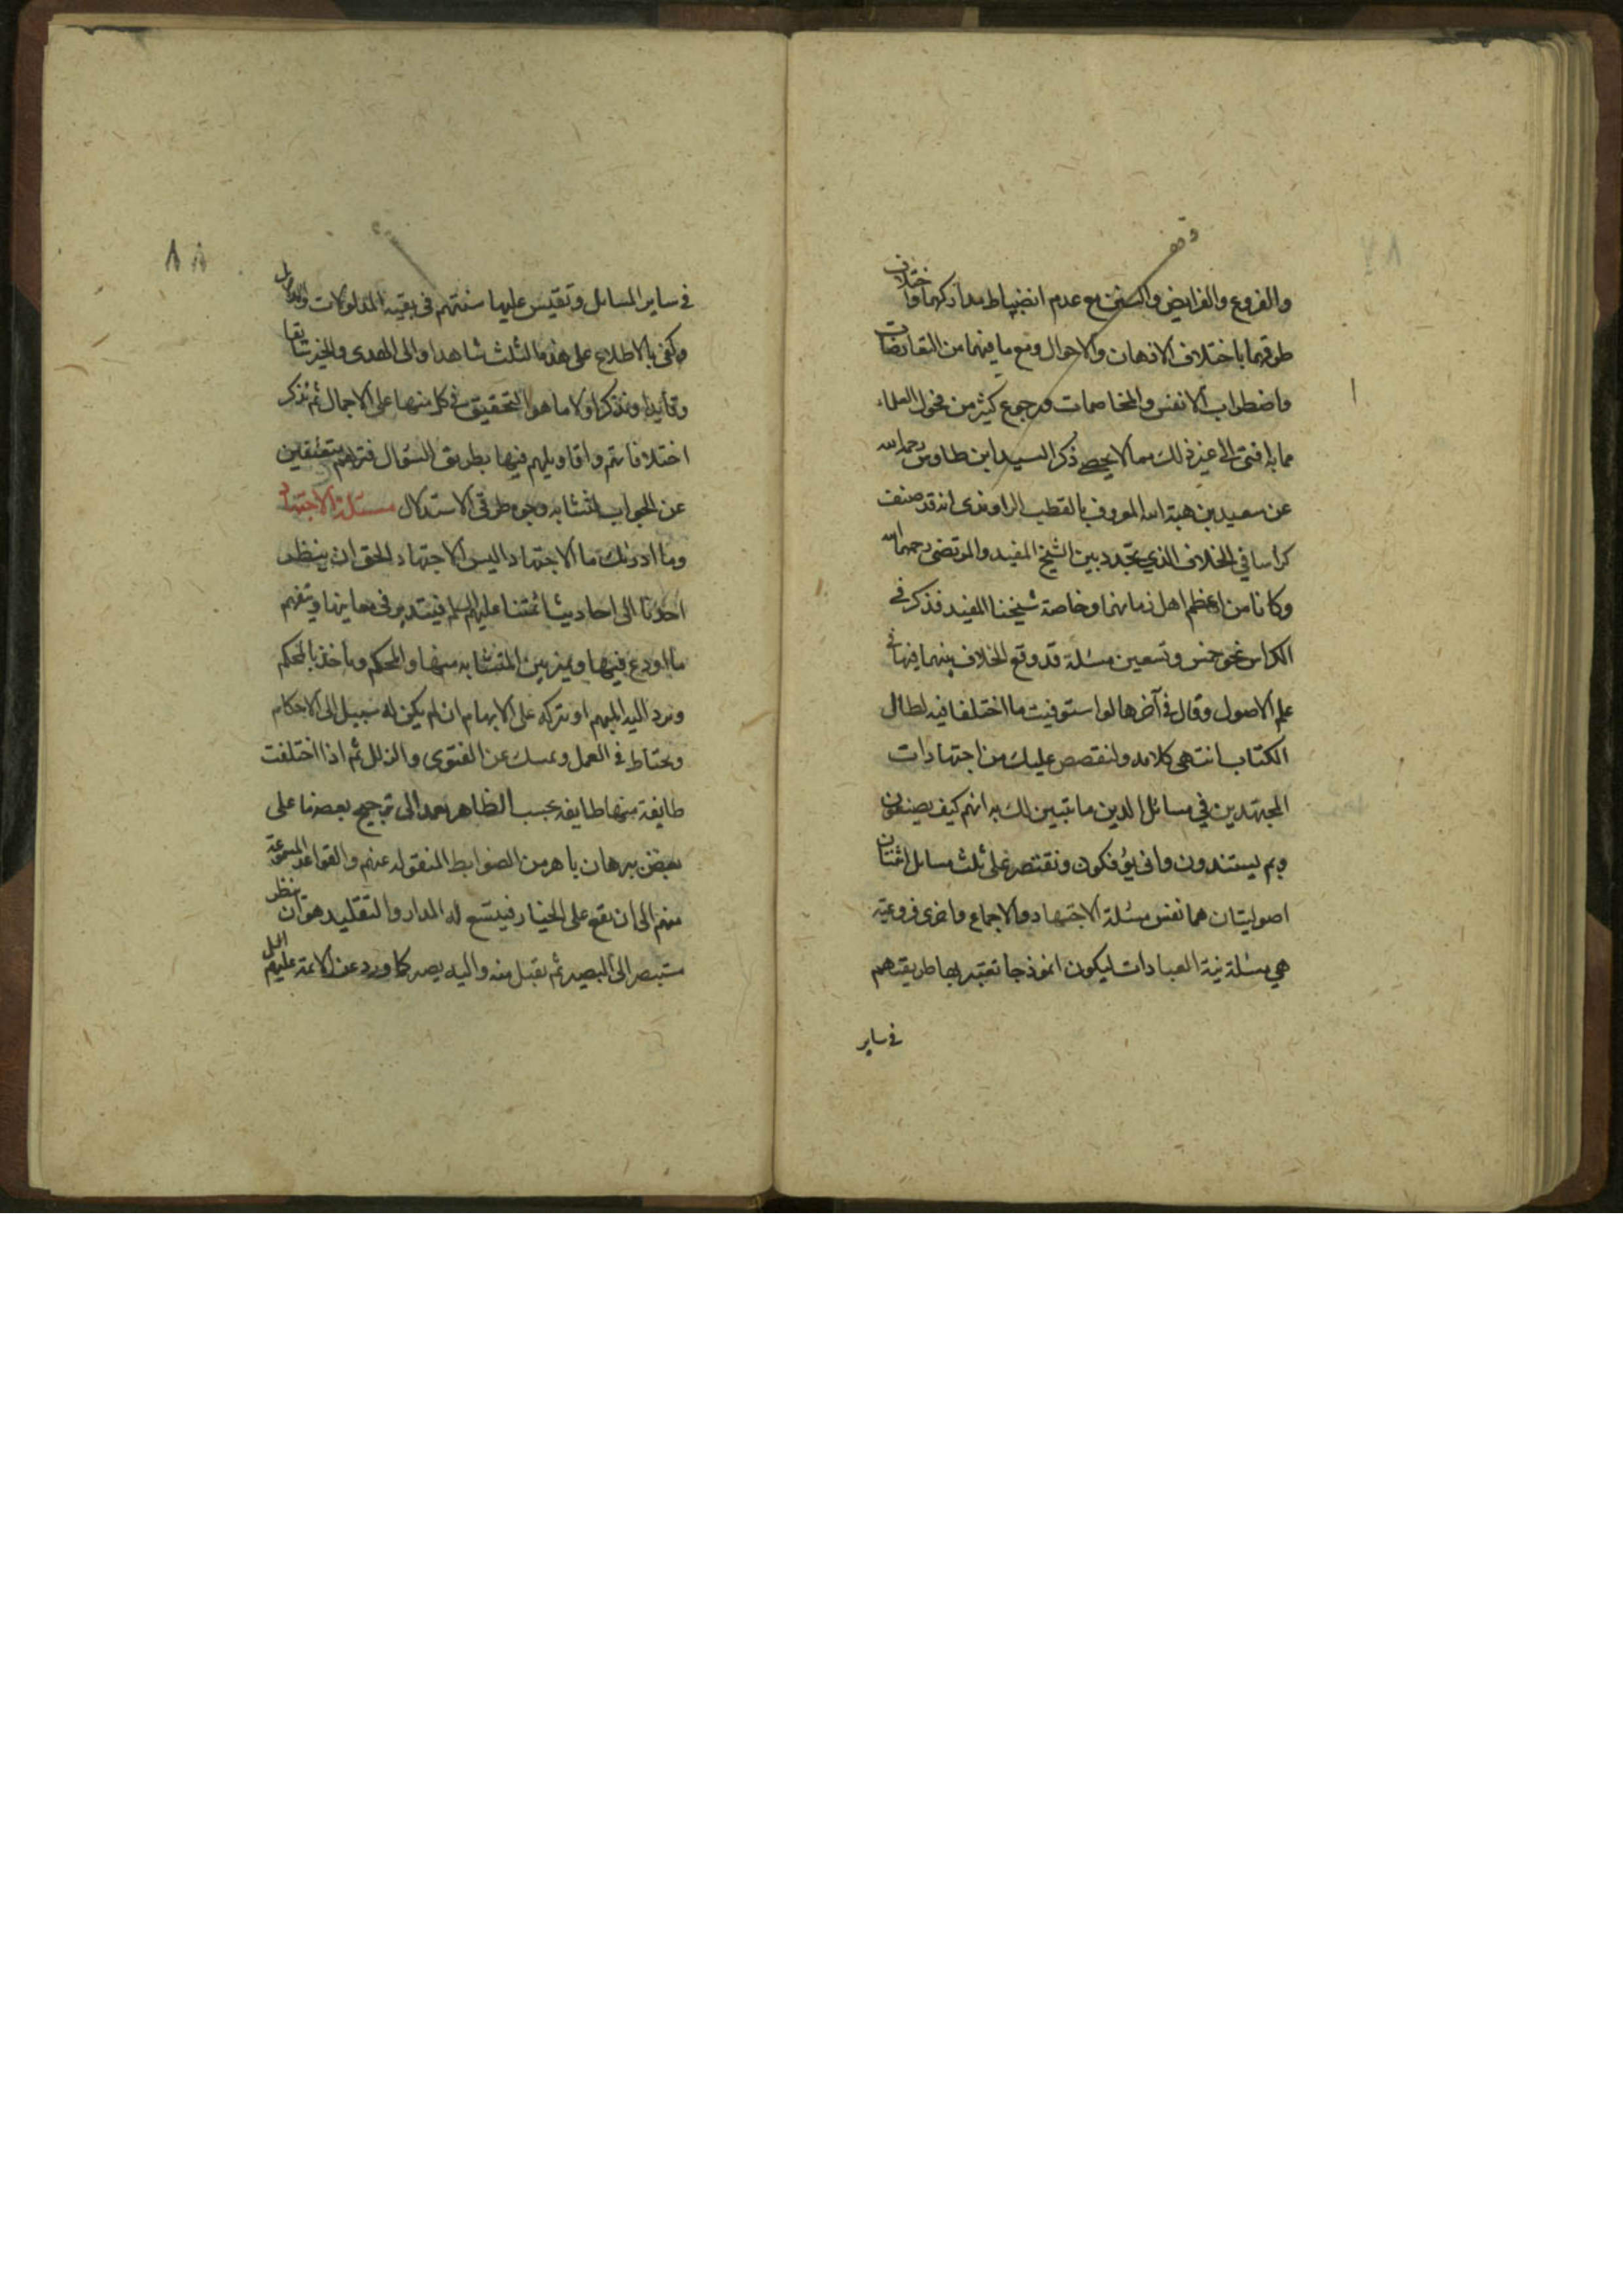 وقف
والفروع والفرايض والسنن مع عدم انضباط مداركهما واختلاف
طرقهما باختلاف الاذهان والاحوال ومع ما فيهما من التعارضات
واضطراب الانفس والمخاصمات ورجوع كثير من فحول العلماء
مما به افتى الى غير ذلك مما لا يحصى ذكر السيد ابن طاوس رحمه الله
عن سعيد بن هبة الله المعروف بالقطب الراوندى انه قد صنف
كراسا في الخلاف الذي تجدد بين الشيخ المفيد والمرتضى رحمهما الله
وكانا من اعظم اهل زمانهما وخاصة شيخنا المفيد فذكر في
الكراس نحو خمس وتسعين مسئلة قد وقع الخلاف بينهما فيها في
علم الاصول وقال في آخرها لو استوفيت ما اختلفا فيه لطال
الكتاب انتهى كلامه ولنقصص عليك من اجتهادات
المجتهدين في مسائل الدين ما تتبين لك به انهم كيف يصنعون
وبم يستندون وانى يؤفكون ونقتصر على ثلث مسايل اثنتان
اصوليتان هما نفس مسئلة الاجتهاد والاجماع واخرى فروعية
هي مسئلة نية العبادات ليكون انموذجا تعتبر بها طريقتهم
في ساير
٨٨
في ساير المسائل وتقيس عليها سنتهم فى بقية المدلولات والدلايل
وكفى بالاطلاع على هذه الثلث شاهدا والى الهدى والخير سائقا
وقائدا ونذكر اولا ما هو التحقيق في كل منها على الاجمال ثم نذكر
اختلافاتهم واقاويلهم فيها بطريق السؤال فتراهم متفرقين
عن الجواب لتشابه وجوه طرق الاستدلال مسئلة الاجتهاد
وما ادريك ما الاجتهاد اليس الاجتهاد الحق ان ينظر
احدنا الى احاديث ائمتنا عليهم السلم فيتدبر فى معاينها ويتفهم
ما اودع فيها ويميز بين المتشابه منها والمحكم وياخذ بالمحكم
ويرد اليه المبهم او يتركه على الابهام ان لم يكن له سبيل الى الاحكام
ويحتاط في العمل ويمسك عن الفتوى والزلل ثم اذا اختلفت
طايفة منها طايفة بحسب الظاهر يعمد الى ترجيح بعضها على
بعض ببرهان باهر من الضوابط المنقولة عنهم والقواعد المسموعة
منهم الى ان يقع على الخيار فيتسع له المدار والتقليد هو ان ينظر
مستبصر الى البصير ثم يقبل منه واليه يصير كما ورد عن الائمة عليهم السل